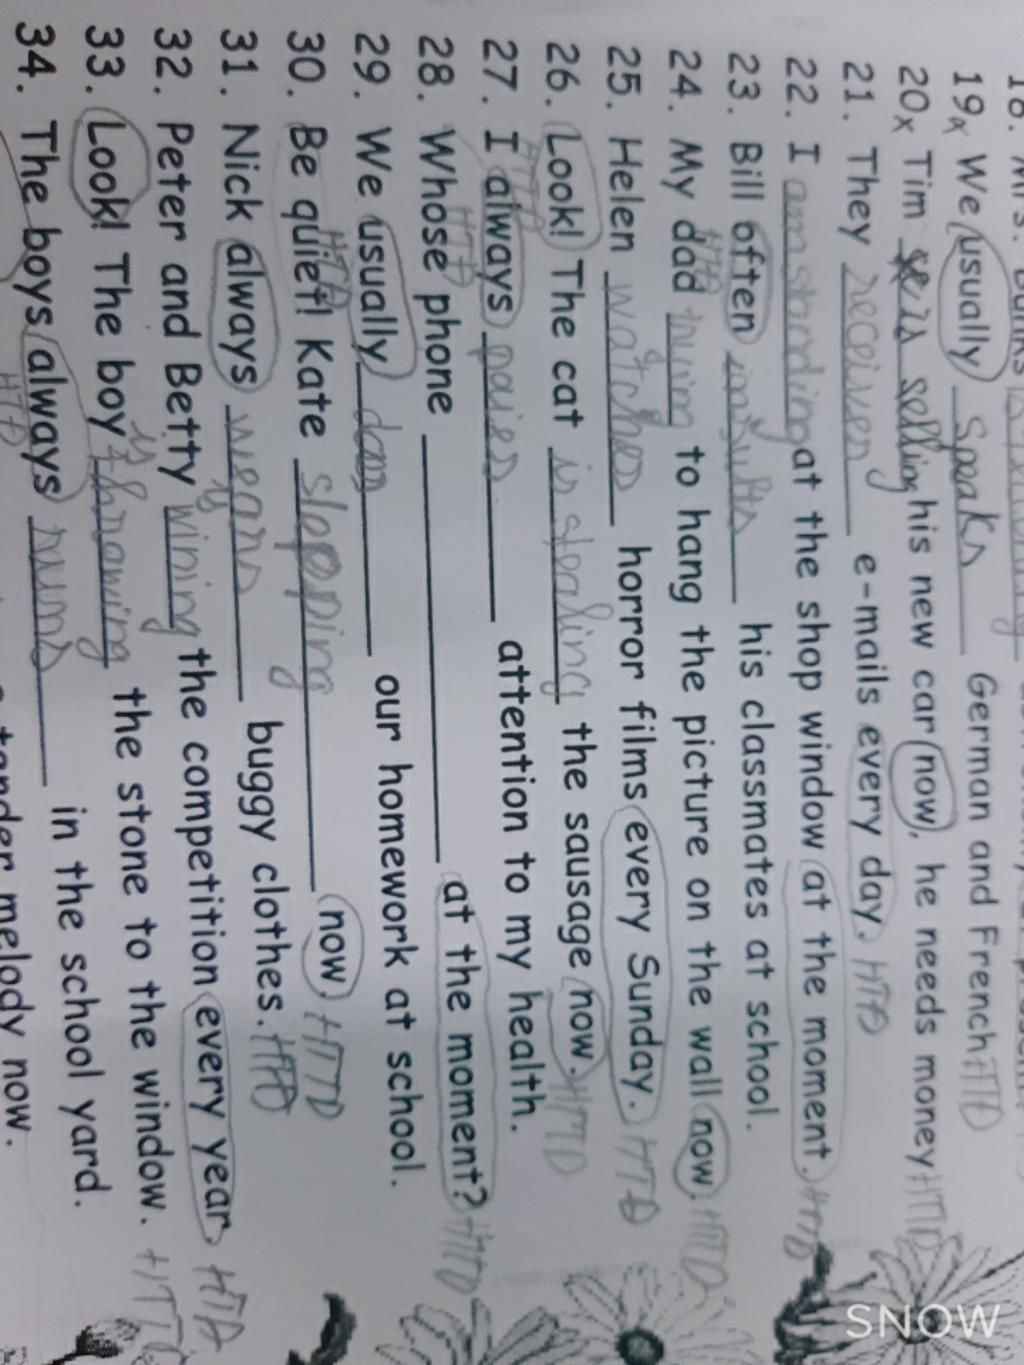 19x We usually speaks German and French HTĐ
20x Tim is selling his new car now, he needs money HTTD
21. They receives e-mails every day. HTĐ
22. I am standing at the shop window at the moment. HTTD
23. Bill often insults his classmates at school.
24. My dad to hang the picture on the wall now. HTTD
25. Helen watches horror films every Sunday. HTĐ
26. Look! The cat is stealing the sausage now. HTTD
27. I always paies attention to my health.
28. Whose phone at the moment? HTTD
29. We usually our homework at school.
30. Be quiet! Kate slepping now. HTTD
31. Nick always wears buggy clothes. HTĐ
32. Peter and Betty wining the competition every year. HTĐ
33. Look! The boy is throwing the stone to the window. HTTD
34. The boys always runs in the school yard.
tender melody now.
SNOW